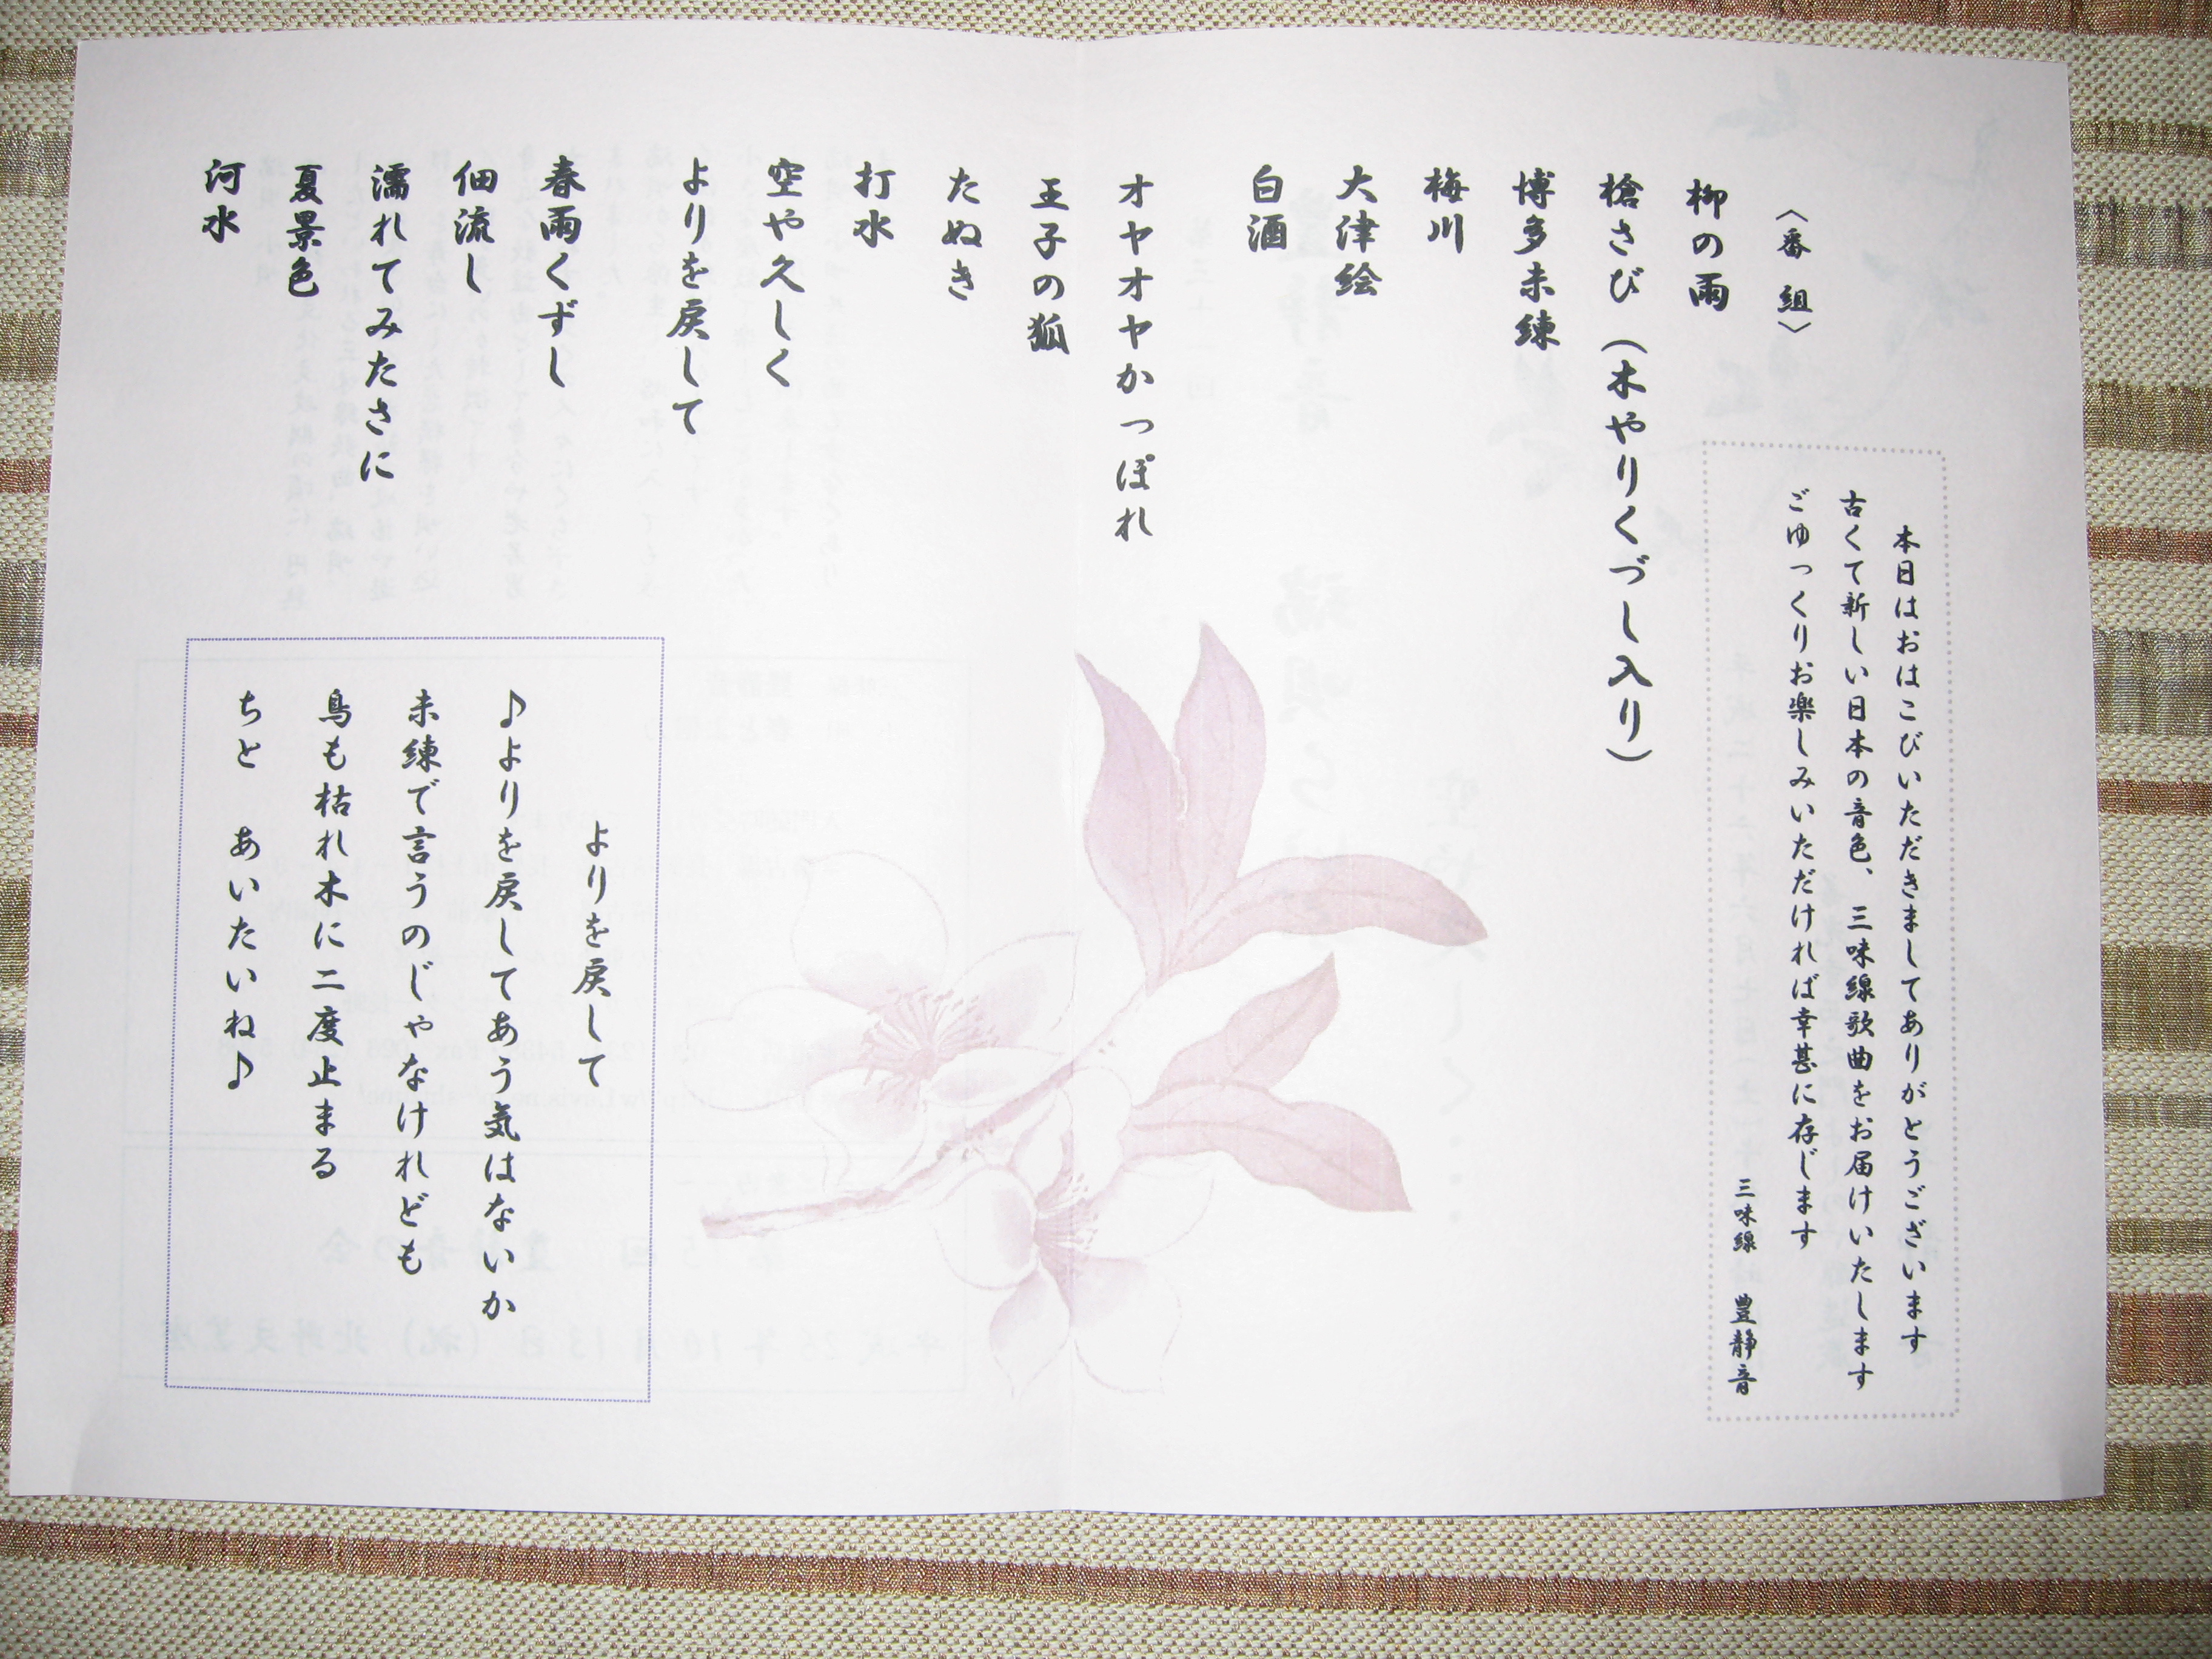 本日はおはこびいただきましてありがとうございます
古くて新しい日本の音色、三味線歌曲をお届けいたします
ごゆっくりお楽しみいただければ幸甚に存じます
三味線 豊静音
〈番 組〉
柳の雨
槍さび（木やりくづし入り）
博多未練
梅川
大津絵
白酒
オヤオヤかっぽれ
王子の狐
たぬき
打水
空や久しく
よりを戻して
春雨くずし
佃流し
濡れてみたさに
夏景色
河水
よりを戻して
♪よりを戻してあう気はないか
未練で言うのじゃなけれども
鳥も枯れ木に二度止まる
ちと あいたいね♪